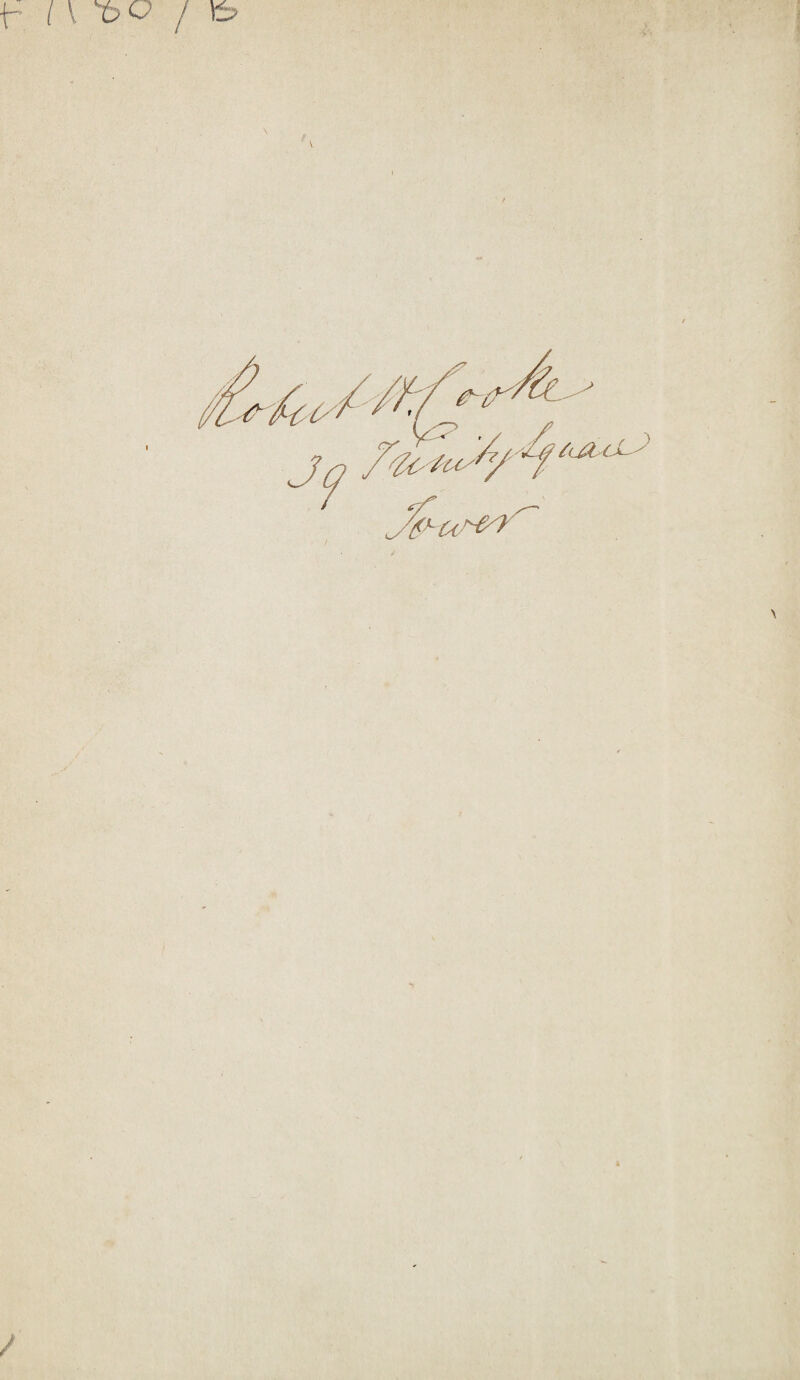 Robert H. Cooke
39 Trinity Square
Tower